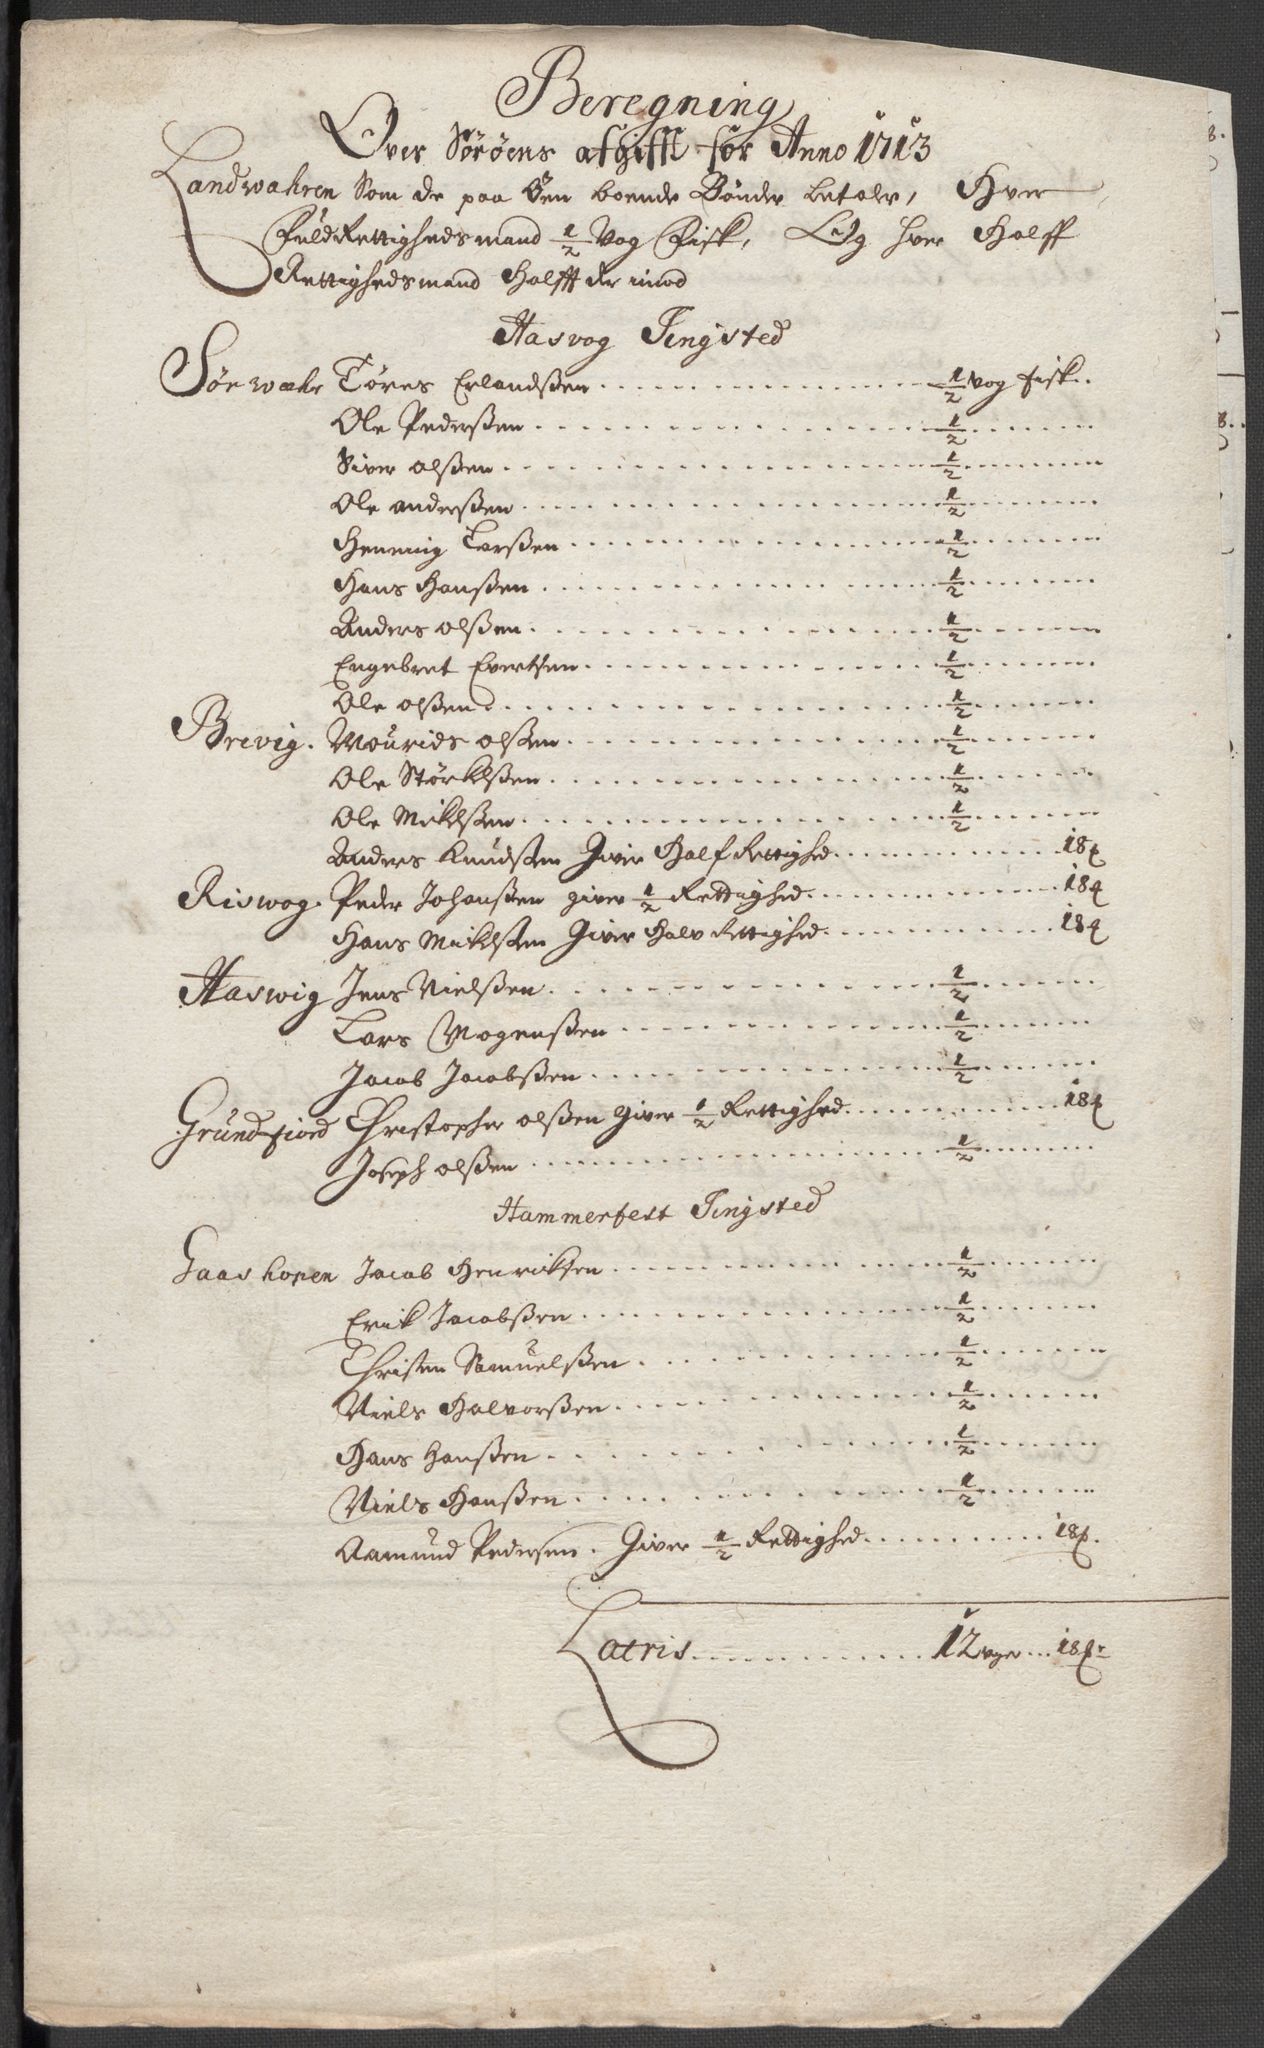 Beregning
Over Sørøens afgifft for Anno 1713
Landwahren Som de paa Øen boende Bønder betaler, Hver
Fuld Rettighedsmand 1/2 Vog Fisk, Og hver Halff
Rettighedsmand Halfft der imod
Hasvog Tingsted
Sørwæhr Tøres Erlandßen 1/2 Vog fisk.
Ole Pederßen 1/2
Siver olßen 1/2
Ole anderßen 1/2
Henning Larßen 1/2
Hans Hanßen 1/2
Anders olßen 1/2
Engebret Evertsen 1/2
Ole olßen 1/2
Brevig. Mourids olßen 1/2
Ole Størkelßen 1/2
Ole Mickelßen 1/2
Anders Knudßen Giver Half Rettighed 18 ℔
Riswog. Peder Johanßen giver 1/2 Rettighed 18 ℔
Hans Mickelßen Giver Halv Rettighed 18 ℔
Haswig Jens Nielßen 1/2
Lars Mogenßen 1/2
Jacob Jacobßen 1/2
Grundfiord Christopher olßen Giver 1/2 Rettighed 18 ℔
Joseph olßen 1/2
Hammerfest Tingsted
Gaashopen Jacob Henricksen 1/2
Erik Jacobßen 1/2
Christen Samuelßen 1/2
Niels Halvorßen 1/2
Hans Hanßen 1/2
Niels Hanßen 1/2
Aamund Pedersen. Giver 1/2 Rettighed 18 ℔.
Latris 12 vger 18 ℔